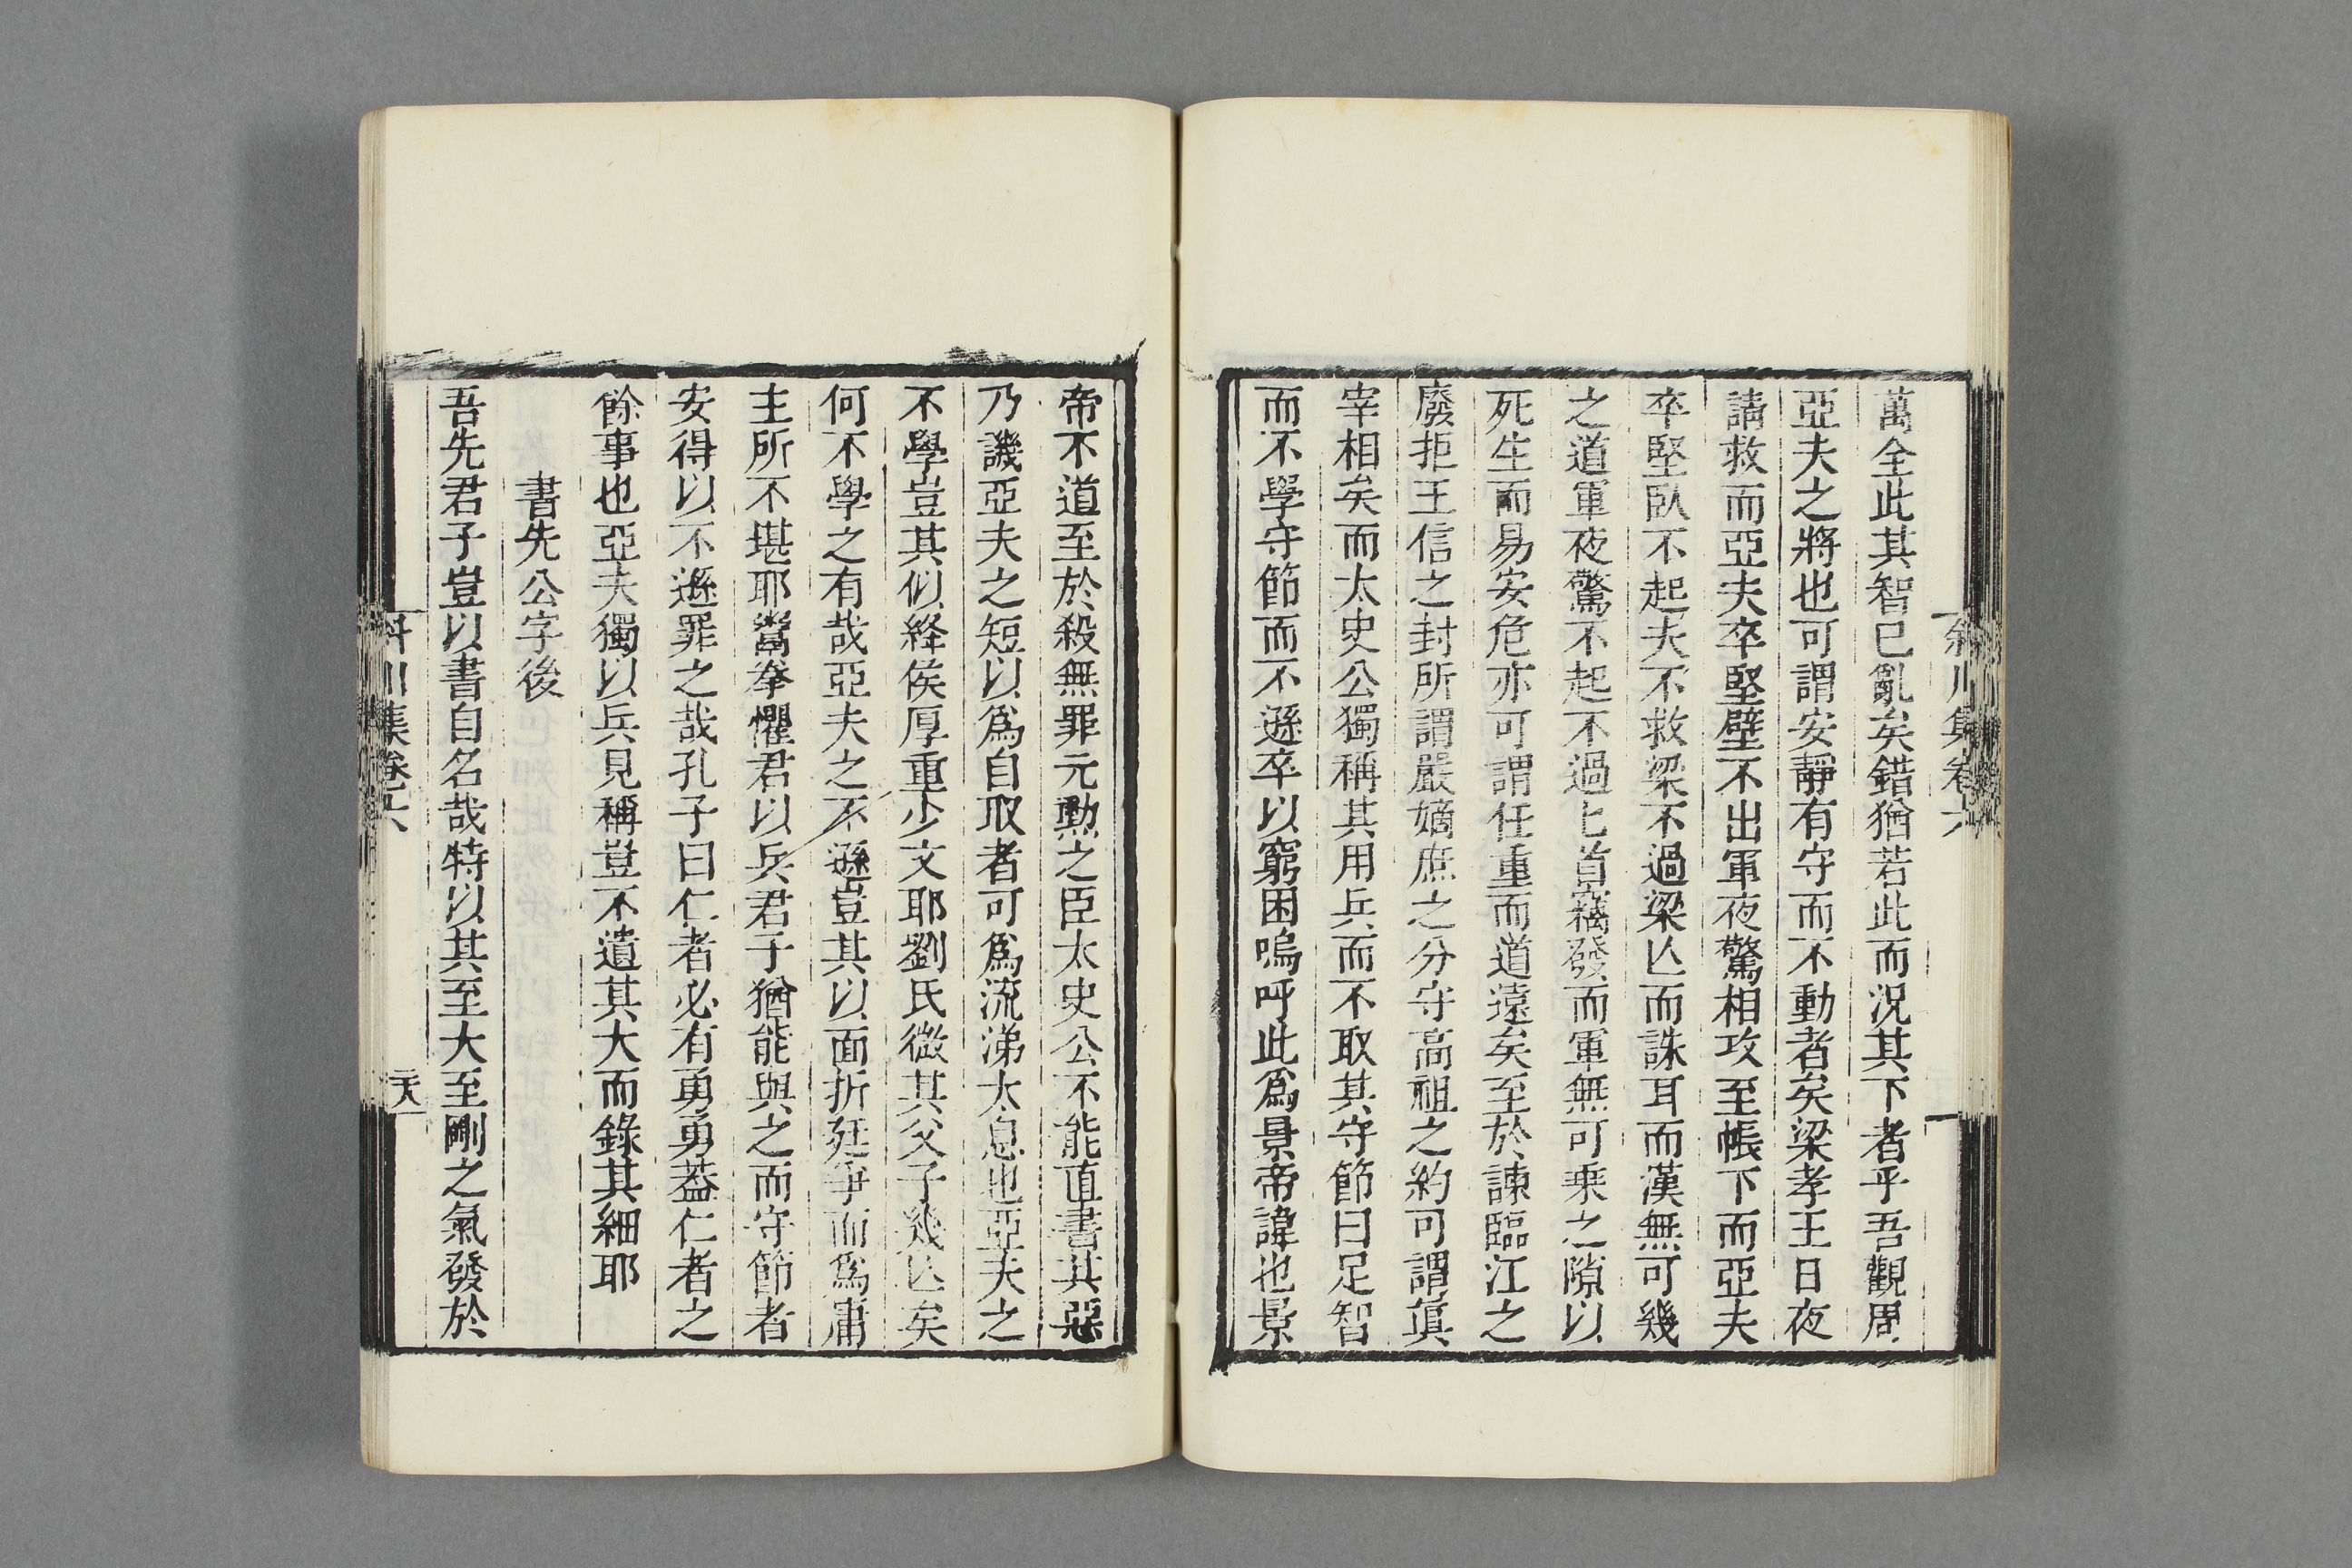 萬全此其智已亂矣錯猶若此而況其下者乎吾觀周
亞夫之將也可謂安靜有守而不動者矣梁孝王日夜
請救而亞夫卒堅壁不出軍夜驚相攻至帳下而亞夫
卒堅臥不起夫不救梁不過梁亾而誅耳而漢無可幾
之道軍夜驚不起不過匕首竊發而軍無可乗之隙以
死生而易安危亦可謂任重而道遠矣至於諫臨江之
廢拒王信之封所謂嚴嫡庶之分守高祖之約可謂真
宰相矣而太史公獨稱其用兵而不取其守節曰足智
而不學守節而不遜卒以窮困嗚呼此爲景帝諱也景
帝不道至於殺無罪元勳之臣太史公不能直書其惡
乃譏亞夫之短以爲自取者可爲流涕太息也亞夫之
不學豈其似絳侯厚重少文耶劉氏微其父子幾亾矣
何不學之有哉亞夫之不遜豈其以面折廷爭而爲庸
主所不堪耶鬻拳懼君以兵君子猶能與之而守節者
安得以不遜罪之哉孔子曰仁者必有勇勇葢仁者之
餘事也亞夫獨以兵見稱豈不遺其大而錄其細耶
書先公字後
吾先君子豈以書自名哉特以其至大至剛之氣發於
斜川集卷六